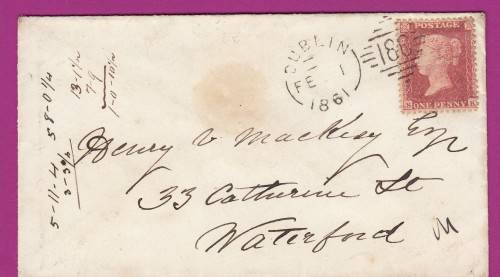 DUBLIN
FE 1
1861
186
POSTAGE
ONE PENNY
Henry V Mackesy Esq
33 Catherine St
Waterford
M
13-1½
7 9
1-0 10½
5-11-4
58-0¼